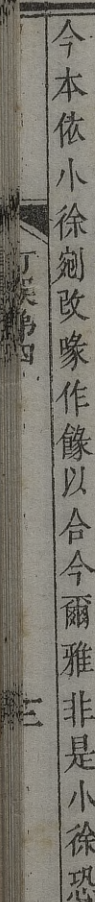 今本依小徐剜改喙作餯以合今爾雅非是小徐恐
三